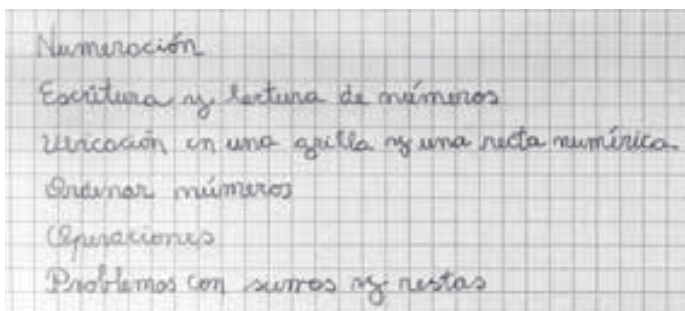 Numeración
Escritura y lectura de números
Ubicación en una grilla y una recta numérica.
Ordenar números
Operaciones
Problemas con sumas y restas